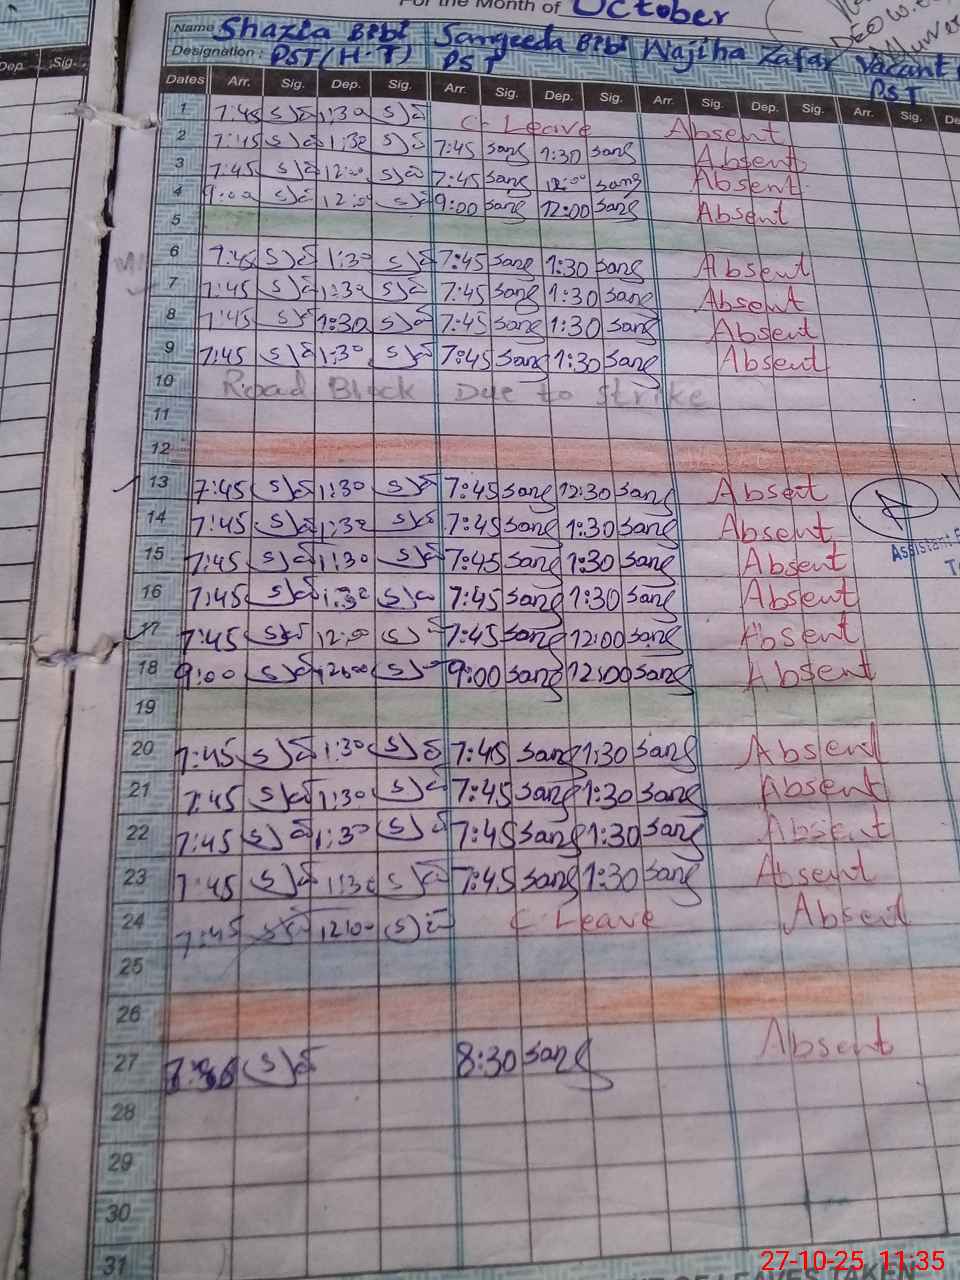 For the Month of October
Name Shazia Bibi Sangeeda Bibi Wajiha Zafar Vacant
Designation: PST (H.T) PST PST
Dep. Sig.
Dates Arr. Sig. Dep. Sig. Arr. Sig. Dep. Sig. Arr. Sig. Dep. Sig. Arr. Sig.
1 7:45 1:30 C-Leave Absent
2 7:45 1:30 7:45 sang 1:30 sang Absent
3 7:45 12:00 7:45 sang 12:00 sang Absent
4 9:00 12:00 9:00 sang 12:00 sang Absent
5
6 7:45 1:30 7:45 sang 1:30 sang Absent
7 7:45 1:30 7:45 sang 1:30 sang Absent
8 7:45 1:30 7:45 sang 1:30 sang Absent
9 7:45 1:30 7:45 sang 1:30 sang Absent
10 Road Block Due to Strike
11
12
13 7:45 1:30 7:45 sang 12:30 sang Absent
14 7:45 1:30 7:45 sang 1:30 sang Absent
15 7:45 1:30 7:45 sang 1:30 sang Absent
Assistant
16 7:45 1:30 7:45 sang 1:30 sang Absent
17 7:45 12:00 7:45 sang 12:00 sang Absent
18 9:00 12:00 9:00 sang 12:00 sang Absent
19
20 7:45 1:30 7:45 sang 1:30 sang Absent
21 7:45 1:30 7:45 sang 1:30 sang Absent
22 7:45 1:30 7:45 sang 1:30 sang Absent
23 7:45 1:30 7:45 sang 1:30 sang Absent
24 7:45 12:00 C Leave Absent
25
26
27 8:30 sang Absent
28
29
30
31
27-10-25 11:35